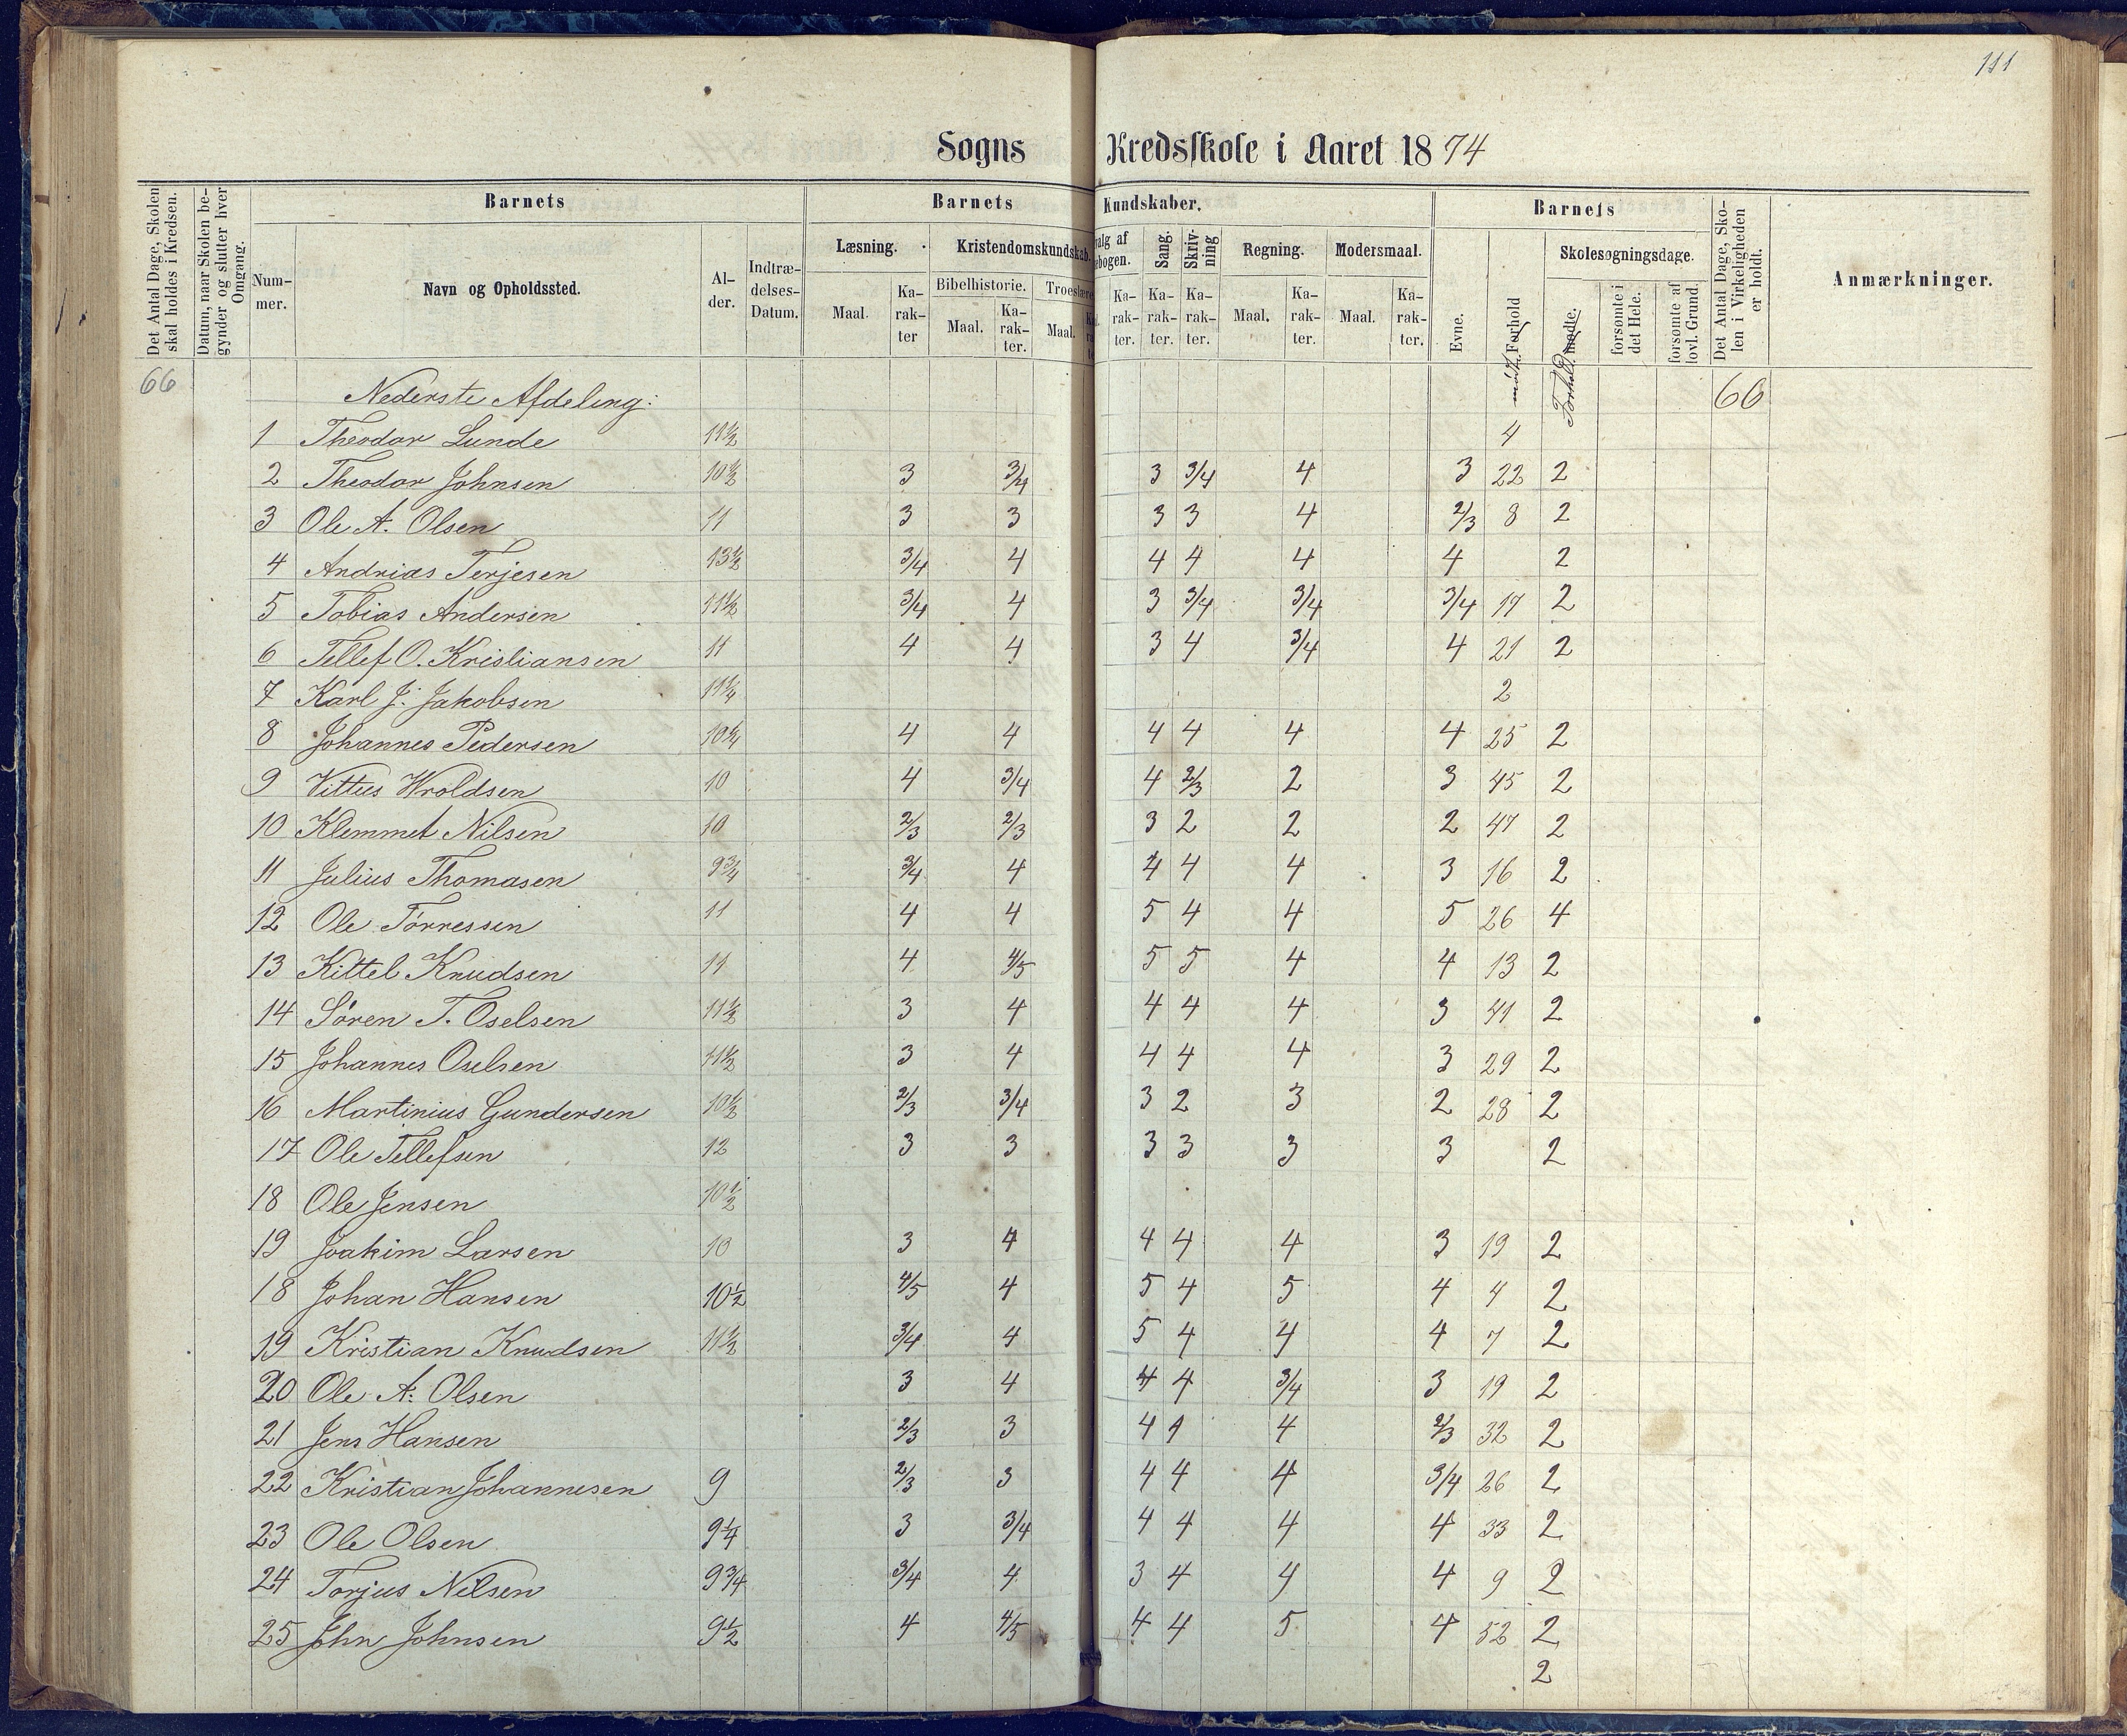 111
Sogns Kredsskole i Aaret 1874
Det Antal Dage, Skolen skal holdes i Kredsen.
Datum, naar Skolen begynder og slutter hver Omgang.
Barnets
Nummer.
Navn og Opholdssted.
Alder.
Indtrædelses-Datum.
Barnets Kundskaber.
Læsning.
Maal.
Karakter
Kristendomskundskab.
Bibelhistorie.
Maal.
Karakter.
Troeslære
Maal.
valg af
ebogen.
Karakter.
Sang.
Karakter.
Skrivning
Karakter.
Regning.
Maal.
Karakter.
Modersmaal.
Maal.
Karakter.
Barnets
Evne.
Forhold
mødte
Skolesøgningsdage.
mødte.
Forhold
forsømte i det Hele.
forsømte af lovl. Grund.
Det Antal Dage, Skolen i Virkeligheden er holdt.
Anmærkninger.
66 Nederste Afdeling: 66
1 Theodor Lunde 11½ 4
2 Theodor Johnsen 10½ 3 3/4 3 3/4 4 3 22 2
3 Ole A. Olsen 11 3 3 3 3 4 2/3 8 2
4 Andrias Terjesen 13½ 3/4 4 4 4 4 4 2
5 Tobias Andersen 11½ 3/4 4 3 3/4 3/4 3/4 17 2
6 Tellef O. Kristiansen 11 4 4 3 4 3/4 4 21 2
7 Karl J. Jakobsen 11¼ 2
8 Johannes Pedersen 10¼ 4 4 4 4 4 4 25 2
9 Vittus Wroldsen 10 4 3/4 4 2/3 2 3 45 2
10 Klemmet Nilsen 10 2/3 2/3 3 2 2 2 47 2
11 Julius Thomasen 9¾ 3/4 4 4 4 4 3 16 2
12 Ole Tørressen 11 4 4 5 4 4 5 26 4
13 Kittel Knudsen 11 4 4/5 5 5 4 4 13 2
14 Søren T. Oselsen 11½ 3 4 4 4 4 3 41 2
15 Johannes Oselsen 11½ 3 4 4 4 4 3 29 2
16 Martinius Gundersen 10½ 2/3 3/4 3 2 3 2 28 2
17 Ole Tellefsen 12 3 3 3 3 3 3 2
18 Ole Jensen 10½
19 Joakim Larsen 10 3 4 4 4 4 3 19 2
18 Johan Hansen 10½ 4/5 4 5 4 5 4 4 2
19 Kristian Knudsen 11½ 3/4 4 5 4 4 4 7 2
20 Ole A. Olsen 3 4 4 4 3/4 3 19 2
21 Jens Hansen 2/3 3 4 4 4 2/3 32 2
22 Kristian Johannesen 9 2/3 3 4 4 4 3/4 26 2
23 Ole Olsen 9¼ 3 3/4 4 4 4 4 33 2
24 Torjus Nilsen 9¾ 3/4 4 3 4 4 4 9 2
25 John Johnsen 9½ 4 4/5 4 4 5 4 52 2
2